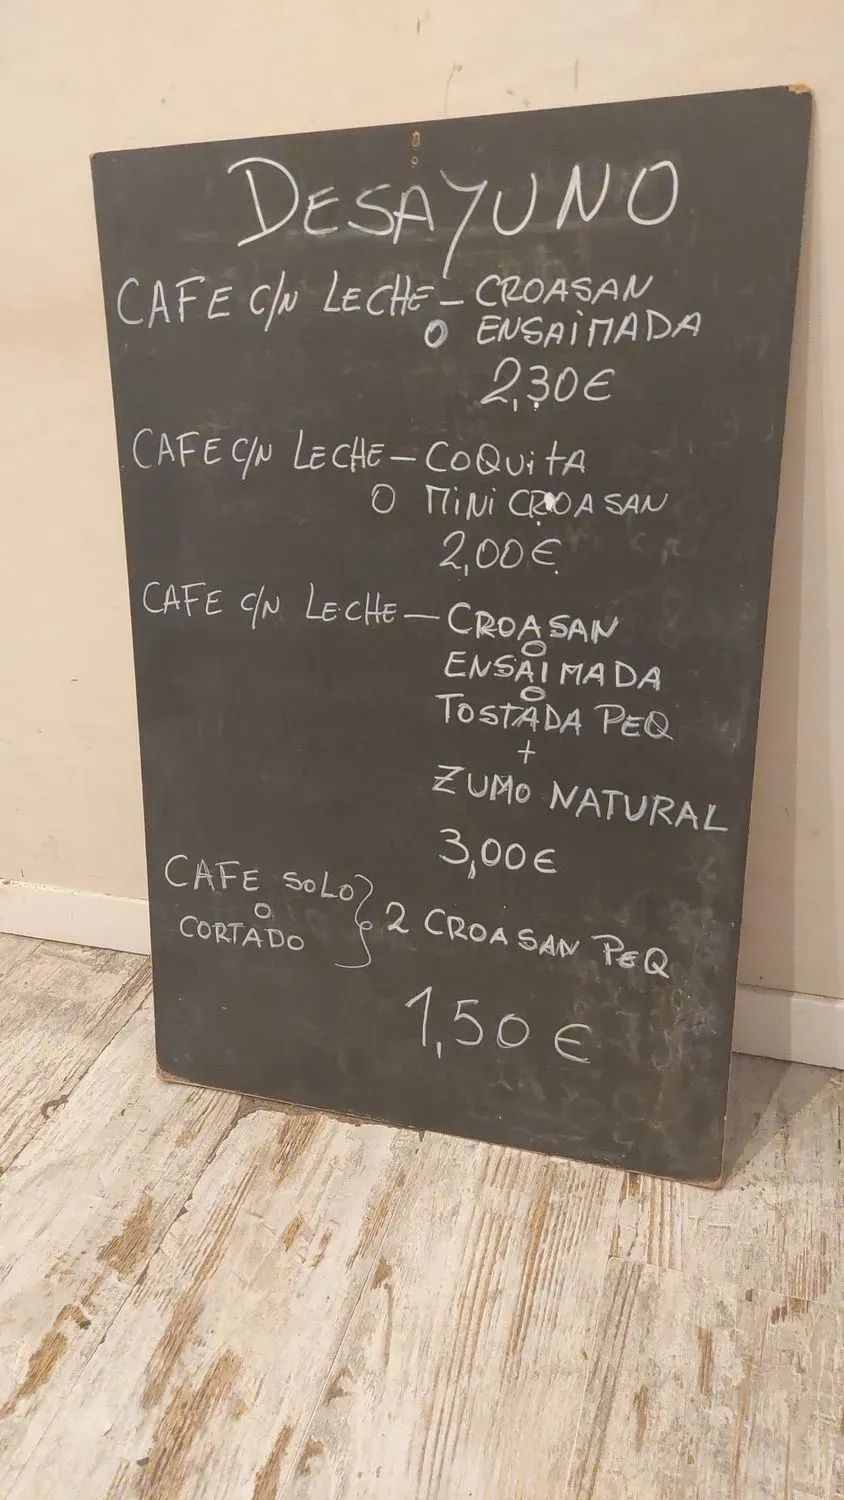 DESAYUNO
CAFE C/N LECHE - CROASAN
O ENSAIMADA
2,30€
CAFE C/N LECHE - COQUITA
O MINI CROASAN
2,00€
CAFE C/N LECHE - CROASAN
O
ENSAIMADA
O
TOSTADA PEQ
+
ZUMO NATURAL
3,00€
CAFE SOLO
O
CORTADO } 2 CROASAN PEQ
1,50 €